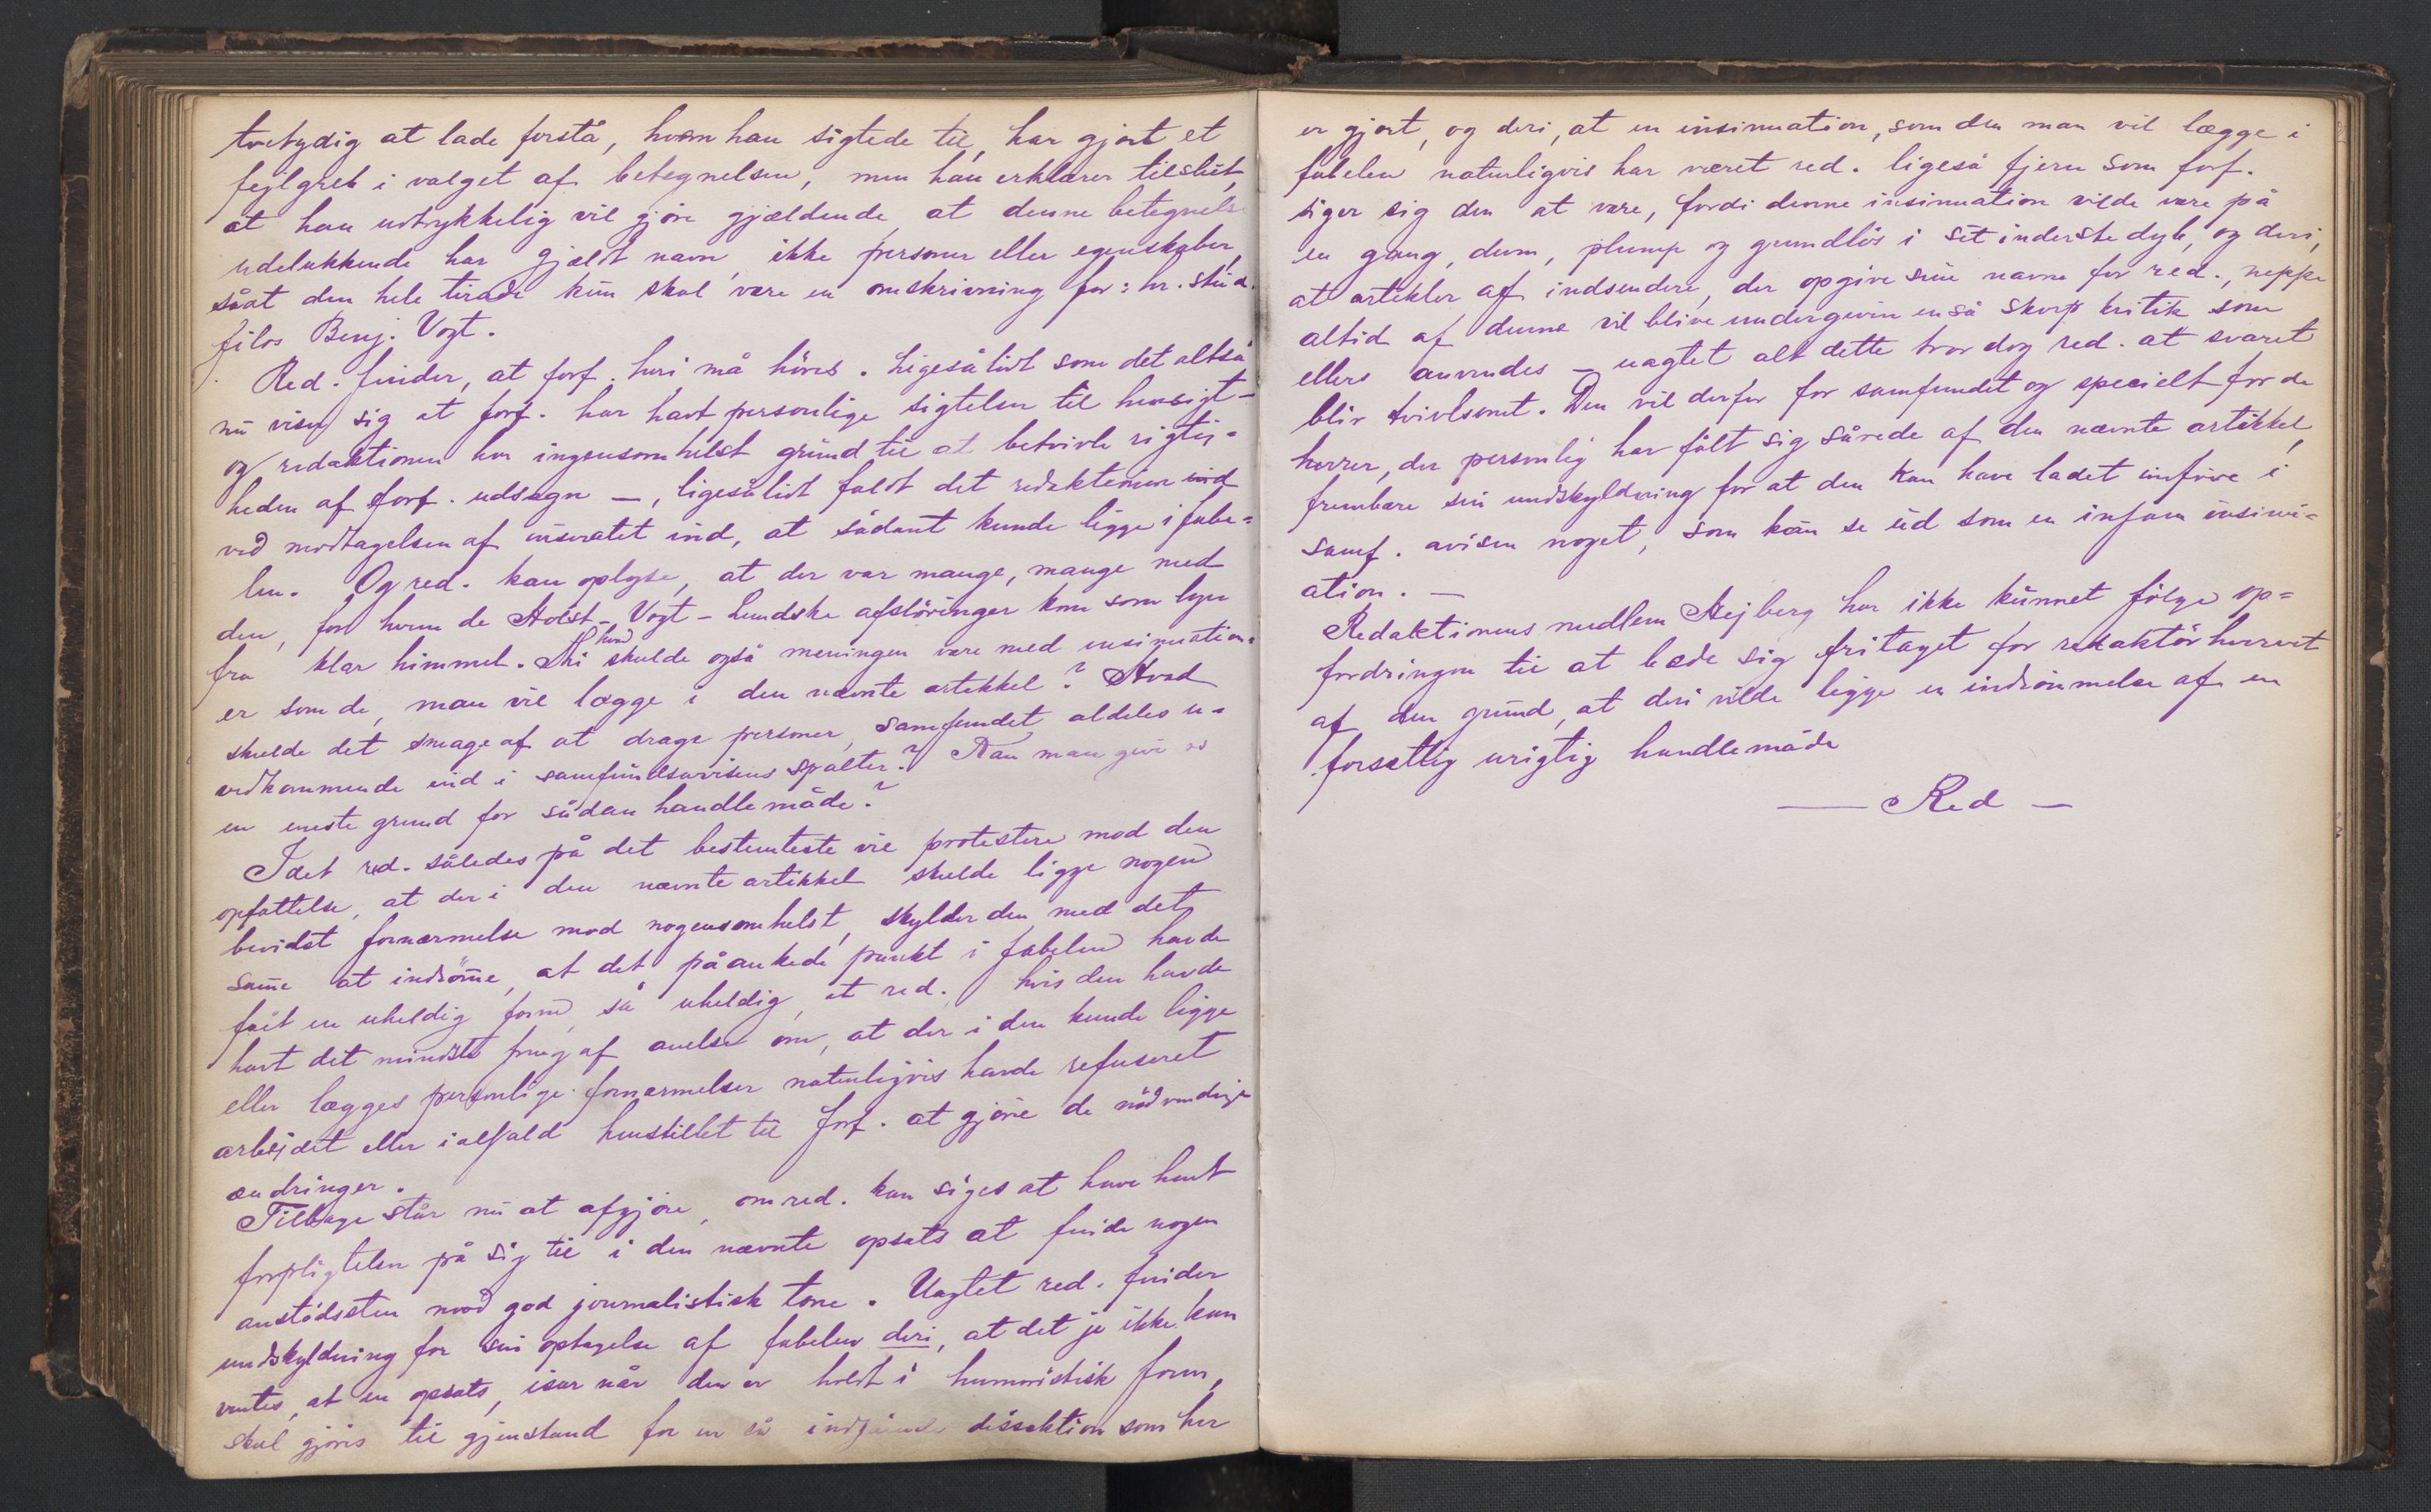 tvetydig at lade forstå, hvem han sigtede til, har gjort et
fejlgreb i valget af betegnelsen, men han erklærer tilslut,
at han udtrykkelig vil gjøre gjældende, at denne betegnelse
udelukkende har gjældt navn, ikke personer eller egenskaber,
såat den hele tirade kun skal være en omskrivning for: hr. stud.
filos Benj. Vogt.
Red. finder, at forf. heri må høres. Ligesålidt som det altså
nu viser sig at forf. har havt personlige sigtelser til hensigt –
og redaktionen har ingensomhelst grund til at betvivle rigtig=
heden af forf. udsagn –, ligesålidt faldt det redaktionen ind
ved modtagelsen af inseratet ind, at sådant kunde ligge i fabe=
len. Og red. kan oplyse, at der var mange, mange med
den, for hvem de Holst-Vogt-Lundske afsløringer kom som lyn
fra klar himmel. Thi hvad skulde også meningen være med insinuation=
er som de, man vil lægge i den nævnte artikkel? Hvad
skulde det smage af at drage personer, samfundet aldeles u=
vedkommende ind i samfundsavisens spalter? Kan man give os
en eneste grund for sådan handlemåde?
Idet red. således på det bestemteste vil protestere mod den
opfattelse, at der i den nævnte artikkel skulde ligge nogen
bevidst fornærmelse mod nogensomhelst, skylder den med det
samme at indrømme, at det påankede punkt i fabelen havde
fåt en uheldig form, så uheldig, at red., hvis den havde
havt det mindste snug af anelse om, at der i den kunde ligge
eller lægges personlige fornærmelser naturligvis havde refuseret
arbejdet eller ialfald henstillet til forf. at gjøre de nødvendige
ændringer.
Tilbage står nu at afgjøre, om red. kan siges at have havt
forpligtelsen på sig til i den nævnte opsats at finde nogen
anstødssten mod god journalistisk tone. Uagtet red. finder
undskyldning for sin optagelse af fabelen deri, at det jo ikke kan
ventes, at en opsats, især når den er holdt i humoristisk form,
skal gjøres til gjenstand for en så indgående dissektion som her
er gjort, og deri, at en insinuation, som den man vil lægge i
fabelen naturligvis har været red. ligeså fjern som forf.
siger sig den at være, fordi denne insinuation vilde være på
en gang, dum, plump og grundløs i sit inderste dyb, og deri,
at artikler af indsendere, der opgive sine navne for red., neppe
altid af denne vil blive undergiven en så skarp kritik som
ellers anvendes – uagtet alt dette tror dog red. at svaret
blir tvivlsomt. Den vil derfor for samfundet og specielt for de
herrer, der personlig har følt sig sårede af den nævnte artikkel,
frembære sin undskyldning for at den kan have ladet indføre i
samf. avisen noget, som kan se ud som en infam insinu=
ation. –
Redaktionens medlem Hejberg har ikke kunnet følge op=
fordringen til at bede sig fritaget for redaktørhvervet
af den grund, at deri vilde ligge en indrømmelse af en
forsætlig urigtig handlemåde
— Red —